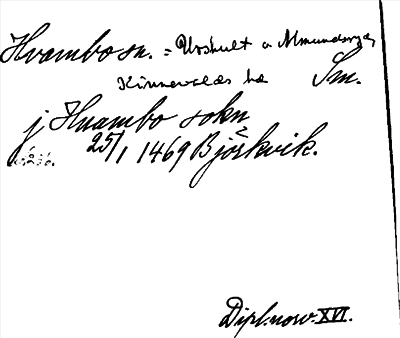 Hvambo sn. = Urshult o Almundsryd,
Kinnevalds hd Sm.
j Huambo sokn
25/1 1469 Björkvik.
Dipl. norv. XVI.